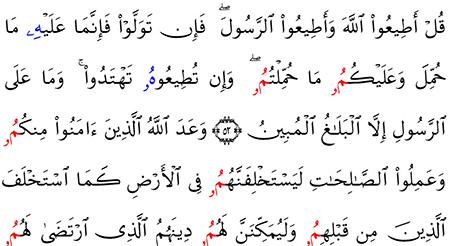 قُلۡ أَطِيعُواْ ٱللَّهَ وَأَطِيعُواْ ٱلرَّسُولَۖ فَإِن تَوَلَّوۡاْ فَإِنَّمَا عَلَيۡهِۦ مَا
حُمِّلَ وَعَلَيۡكُمُۥ مَا حُمِّلۡتُمُۥۖ وَإِن تُطِيعُوهُۥ تَهۡتَدُواْۚ وَمَا عَلَى
ٱلرَّسُولِ إِلَّا ٱلۡبَلَٰغُ ٱلۡمُبِينُ ۝٥٢ وَعَدَ ٱللَّهُ ٱلَّذِينَ ءَامَنُواْ مِنكُمُۥ
وَعَمِلُواْ ٱلصَّٰلِحَٰتِ لَيَسۡتَخۡلِفَنَّهُمُۥ فِي ٱلۡأَرۡضِ كَمَا ٱسۡتَخۡلَفَ
ٱلَّذِينَ مِن قَبۡلِهِمُۥ وَلَيُمَكِّنَنَّ لَهُمُۥ دِينَهُمُ ٱلَّذِي ٱرۡتَضَىٰ لَهُمُۥ